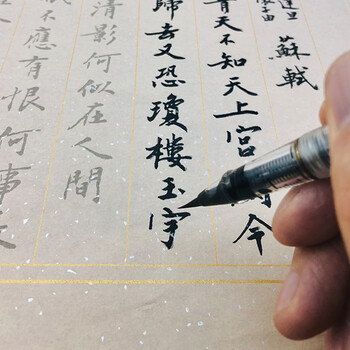 達旦
由 蘇軾
青天不知天上宮 今
歸去又恐瓊樓玉宇
清影何似在人間
不應有恨何事
人